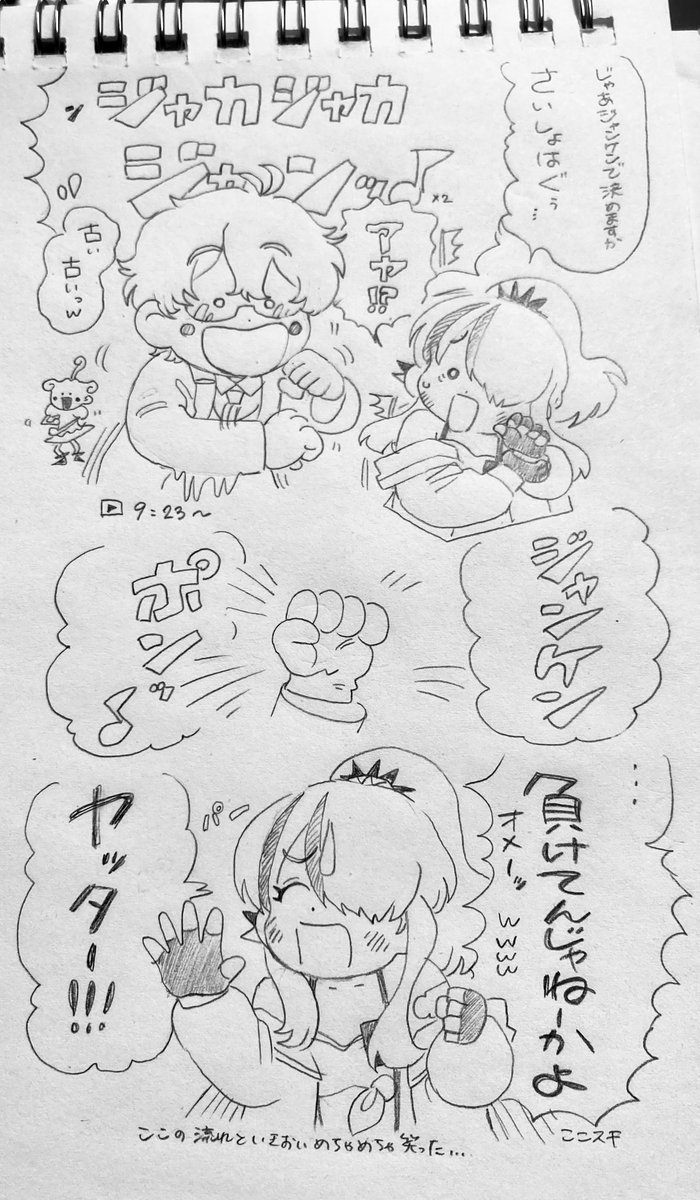 じゃあジャンケンで決めますか
さいしょはぐぅ…
ジャカジャカ
ジャンッ♪×2
アヤ!?
古い
古いっw
▶9:23〜
ジャンケン
ポンッ♪
…
負けてんじゃねーかよ
オメーッwwww
パー
ヤッター!!!
ここの流れといきおいめちゃめちゃ笑った…
ここスキ